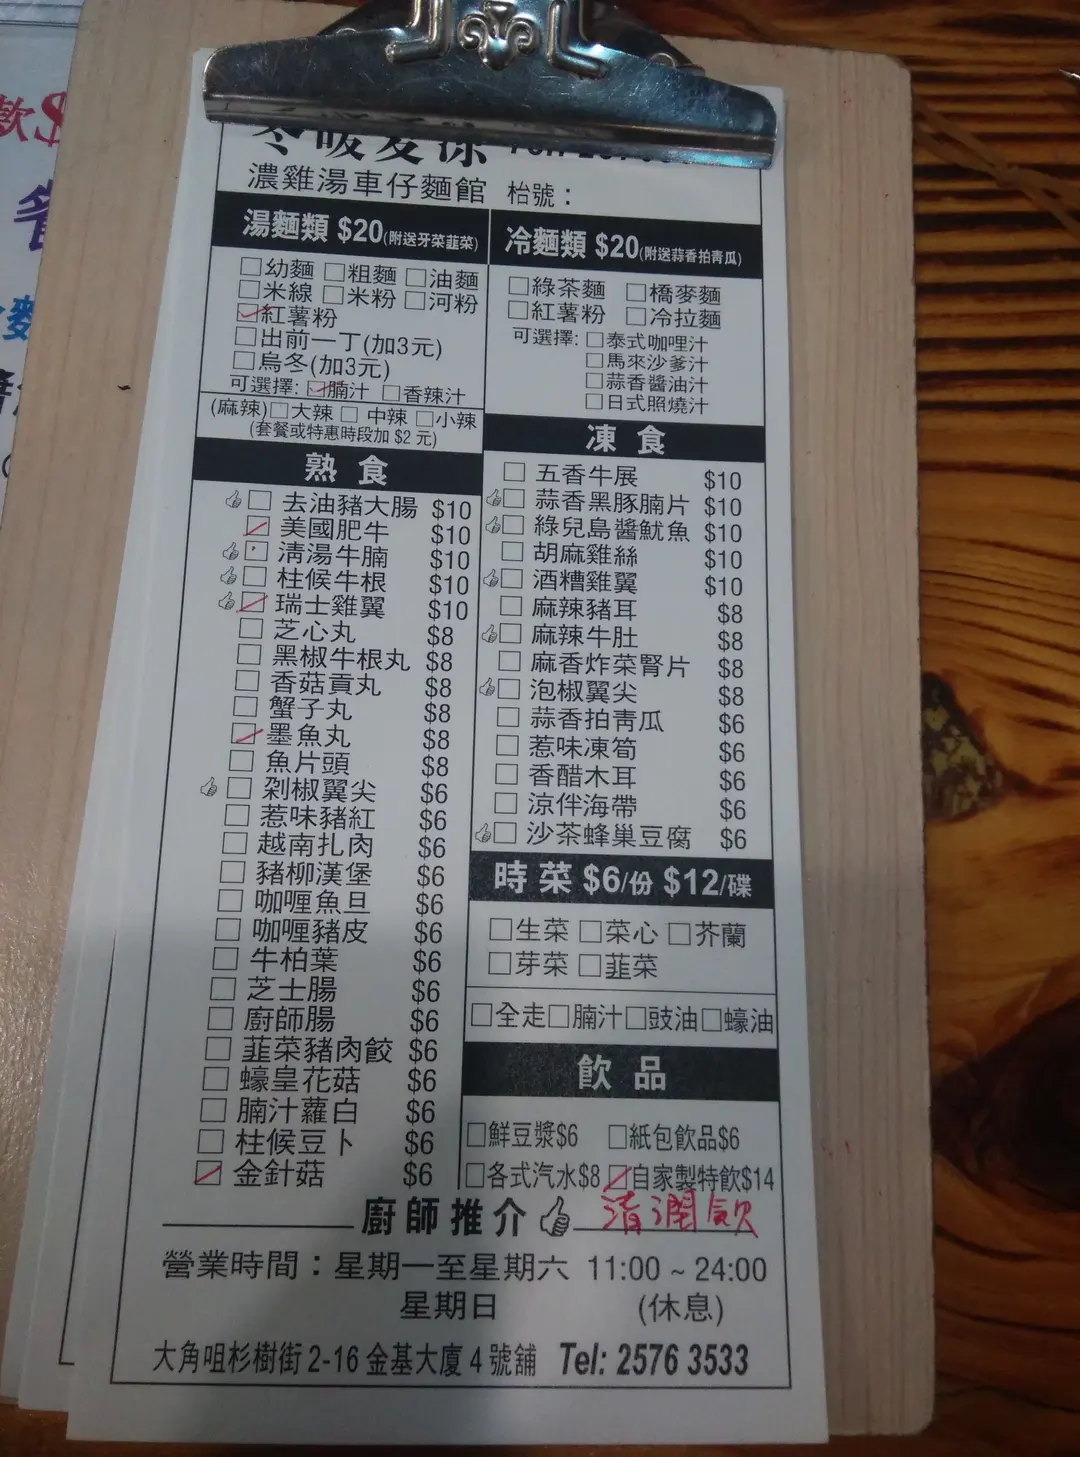 冬暖夏涼
濃雞湯車仔麵館 枱號：
湯麵類 $20(附送牙菜韮菜)
□幼麵 □粗麵 □油麵
□米線 □米粉 □河粉
□紅薯粉
□出前一丁(加3元)
□烏冬(加3元)
可選擇: □腩汁 □香辣汁
(麻辣)□大辣 □ 中辣 □小辣
(套餐或特惠時段加 $2 元)
熟食
□ 去油豬大腸 $10
□ 美國肥牛 $10
□ 清湯牛腩 $10
□ 柱候牛根 $10
□ 瑞士雞翼 $10
□ 芝心丸 $8
□ 黑椒牛根丸 $8
□ 香菇貢丸 $8
□ 蟹子丸 $8
□ 墨魚丸 $8
□ 魚片頭 $8
□ 剁椒翼尖 $6
□ 惹味豬紅 $6
□ 越南扎肉 $6
□ 豬柳漢堡 $6
□ 咖喱魚旦 $6
□ 咖喱豬皮 $6
□ 牛柏葉 $6
□ 芝士腸 $6
□ 廚師腸 $6
□ 韮菜豬肉餃 $6
□ 蠔皇花菇 $6
□ 腩汁蘿白 $6
□ 柱候豆卜 $6
□ 金針菇 $6
冷麵類 $20(附送蒜香拍青瓜)
□綠茶麵 □橋麥麵
□紅薯粉 □冷拉麵
可選擇: □泰式咖哩汁
□馬來沙爹汁
□蒜香醬油汁
□日式照燒汁
凍食
□ 五香牛展 $10
□ 蒜香黑豚腩片 $10
□ 綠兒島醬魷魚 $10
□ 胡麻雞絲 $10
□ 酒糟雞翼 $10
□ 麻辣豬耳 $8
□ 麻辣牛肚 $8
□ 麻香炸菜腎片 $8
□ 泡椒翼尖 $8
□ 蒜香拍青瓜 $6
□ 惹味凍筍 $6
□ 香醋木耳 $6
□ 涼伴海帶 $6
□ 沙茶蜂巢豆腐 $6
時菜 $6/份 $12/碟
□生菜 □菜心 □芥蘭
□芽菜 □韮菜
□全走□腩汁□豉油□蠔油
飲品
□鮮豆漿$6 □紙包飲品$6
□各式汽水$8 □自家製特飲$14
清潤飲
廚師推介
營業時間：星期一至星期六 11:00 ~ 24:00
星期日 (休息)
大角咀杉樹街 2-16 金基大廈 4 號舖 Tel: 2576 3533